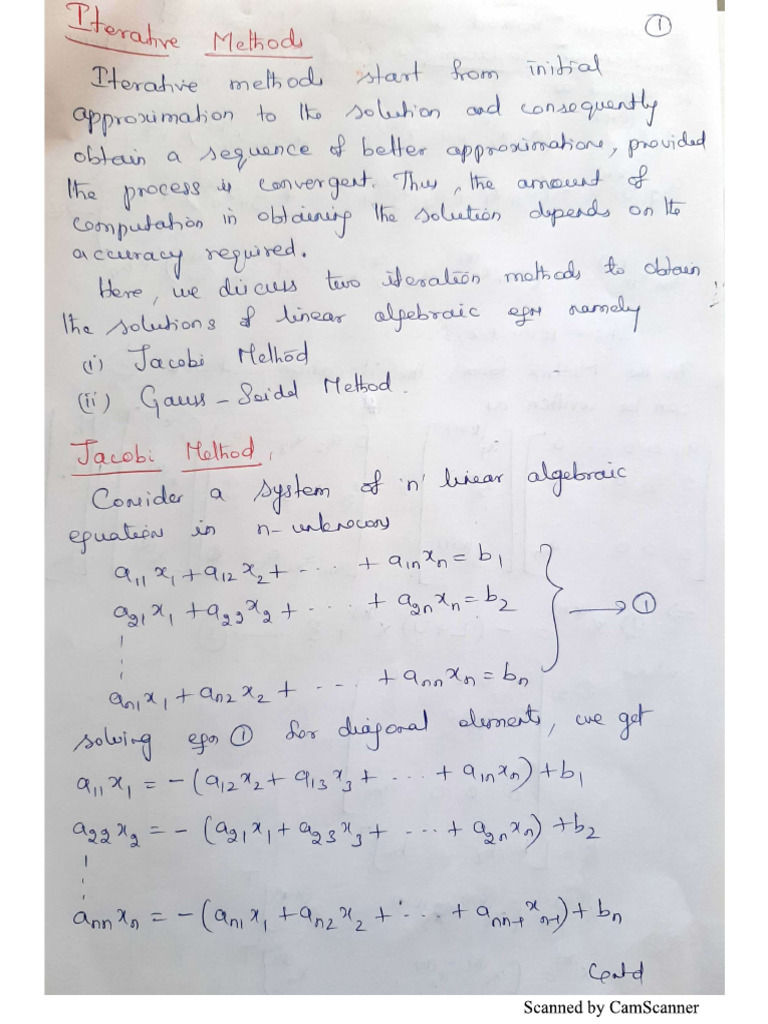 ①
Iterative Methods
Iterative methods start from initial
approximation to the solution and consequently
obtain a sequence of better approximations, provided
the process is convergent. Thus, the amount of
computation in obtaining the solution depends on the
accuracy required.
Here, we discuss two iteration methods to obtain
the solutions of linear algebraic eqn namely
(i) Jacobi Method
(ii) Gauss-Seidel Method.
Jacobi Method,
Consider a system of 'n' linear algebraic
equation in n-unknowns
a₁₁x₁ + a₁₂x₂ + ... + a₁ₙxₙ = b₁
a₂₁x₁ + a₂₂x₂ + ... + a₂ₙxₙ = b₂ → ①
⋮
aₙ₁x₁ + aₙ₂x₂ + ... + aₙₙxₙ = bₙ
solving eqn ① for diagonal elements, we get
a₁₁x₁ = -(a₁₂x₂ + a₁₃x₃ + ... + a₁ₙxₙ) + b₁
a₂₂x₂ = -(a₂₁x₁ + a₂₃x₃ + ... + a₂ₙxₙ) + b₂
⋮
aₙₙxₙ = -(aₙ₁x₁ + aₙ₂x₂ + ... + aₙₙ₋₁xₙ₋₁) + bₙ
Contd
Scanned by CamScanner